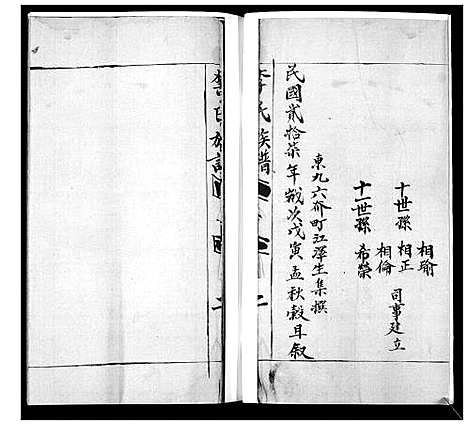 相瑜
十世孫 相正 司事建立
相倫
十一世孫 希榮
東九六介町江澤生集撰
民國貳拾柒年歲次戊寅孟秋穀旦叙
李氏族譜
二
李氏族譜
二